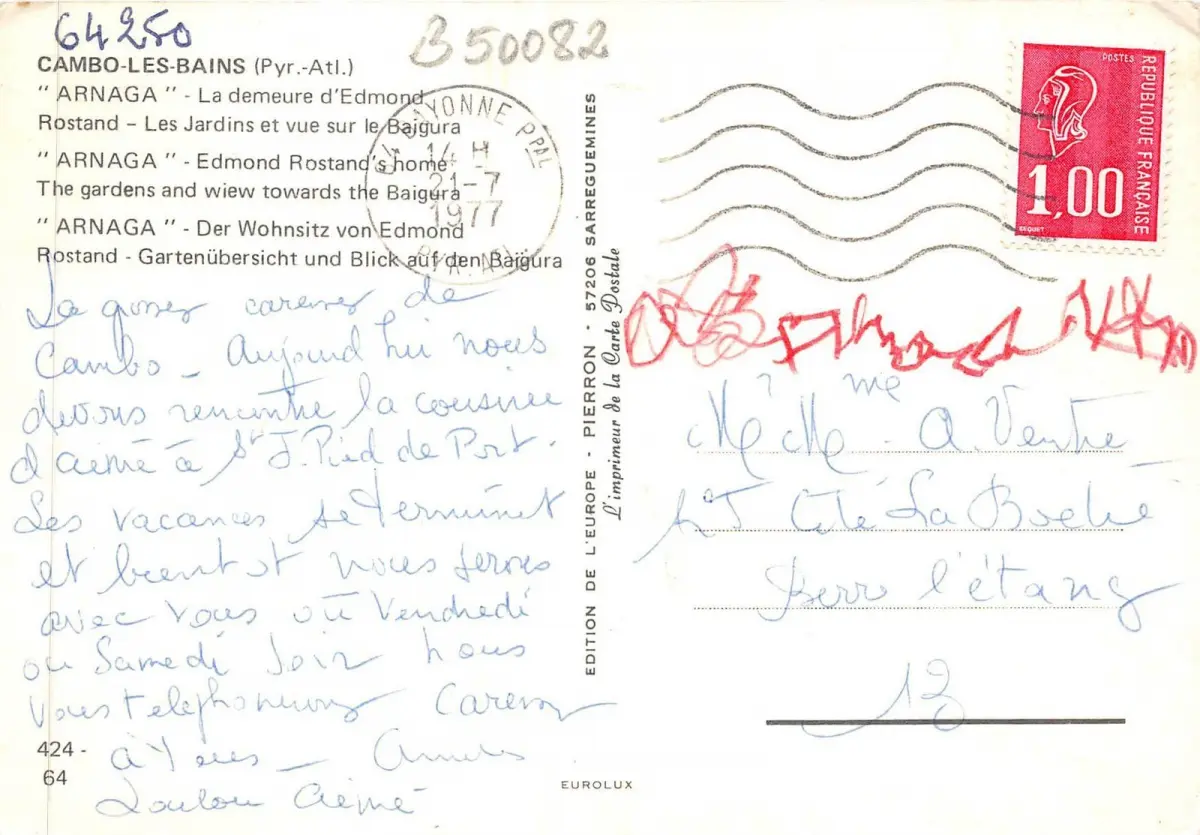 64250
B50082
CAMBO-LES-BAINS (Pyr.-Atl.)
" ARNAGA " - La demeure d'Edmond
Rostand – Les Jardins et vue sur le Baigura
" ARNAGA " - Edmond Rostand's home
The gardens and wiew towards the Baigura
" ARNAGA " - Der Wohnsitz von Edmond
Rostand - Gartenübersicht und Blick auf den Baigura
64 BAYONNE PPAL
14 H
21-7
1977
PYR. ATL.
de
Cambo - Aujourd hui nous
devons rencontre la cousine
d aimé à St J. Pied de Port.
Les vacances se terminet
et bientot nous serons
avec vous ou Vendredi
ou Samedi soir nous
vous telephonerons
à Tous -
Loulou Aimé
424 -
64
EDITION DE L'EUROPE - PIERRON - 57206 SARREGUEMINES
L'imprimeur de la Carte Postale
EUROLUX
POSTES
REPUBLIQUE FRANÇAISE
1,00
BEQUET
Mr Mme A.
Cité La
Berre l'étang
13